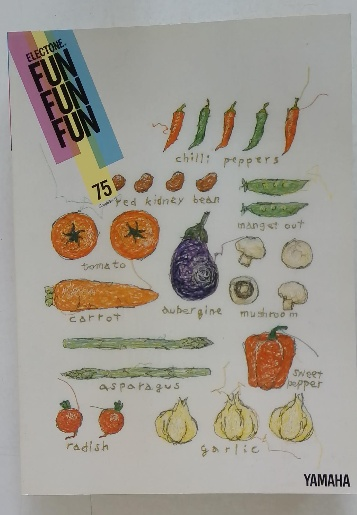 ELECTONE.
FUN
FUN
FUN
75
chilli peppers
red kidney bean
manget out
tomato
carrot
aubergine
mushroom
asparagus
sweet
pepper
radish
garlic
YAMAHA